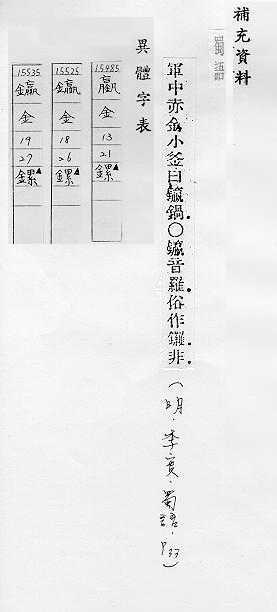 補充資料
蜀語
軍中赤金小釜曰鍋〇音羅俗作鑼非
(明.李實.蜀語.P33)
異體字表
15485
金
13
21
鏍▲
15525
金
18
26
鏍▲
15535
金
19
27
鏍▲